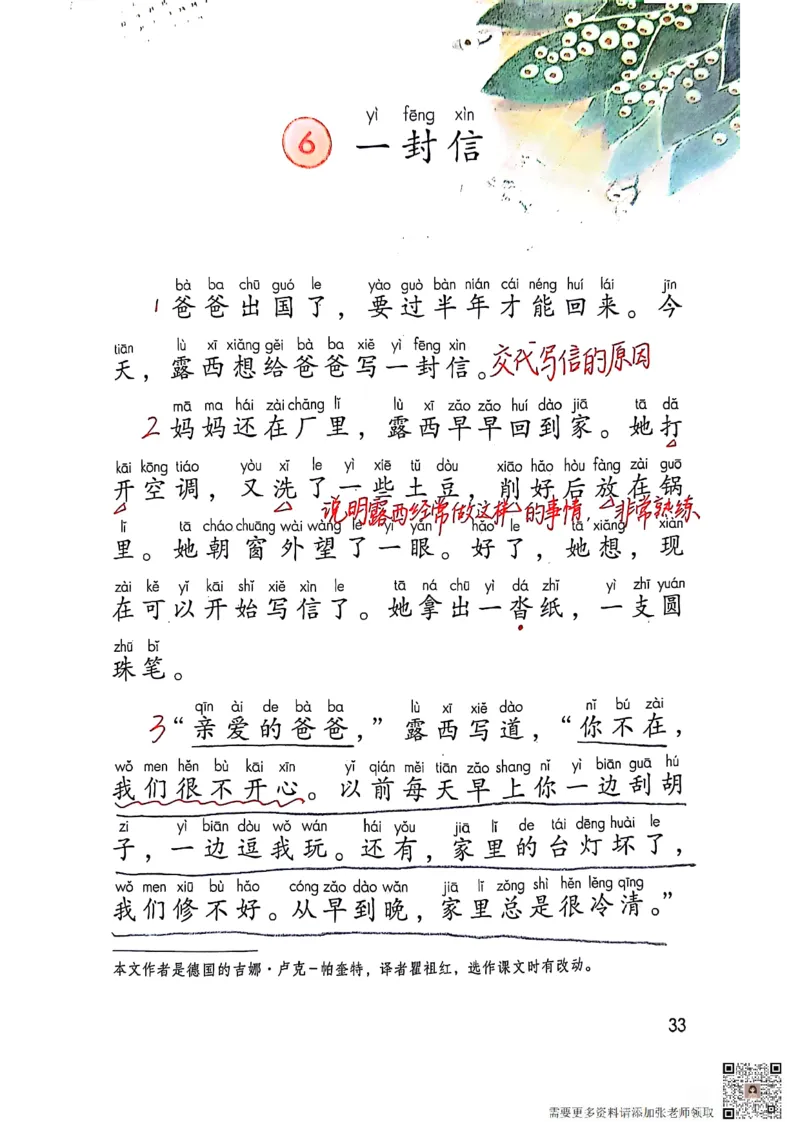 yì fēng xìn
6 一封信
bà ba chū guó le yào guò bàn nián cái néng huí lái jīn
1 爸爸出国了，要过半年才能回来。今
tiān lù xī xiǎng gěi bà ba xiě yì fēng xìn
天，露西想给爸爸写一封信。交代写信的原因
mā ma hái zài chǎng lǐ lù xī zǎo zǎo huí dào jiā tā dǎ
2 妈妈还在厂里，露西早早回到家。她打
kāi kōng tiáo yòu xǐ le yì xiē tǔ dòu xiāo hǎo hòu fàng zài guō
开空调，又洗了一些土豆，削好后放在锅
说明露西经常做这样的事情，非常熟练
lǐ tā cháo chuāng wài wàng le yì yǎn hǎo le tā xiǎng xiàn
里。她朝窗外望了一眼。好了，她想，现
zài kě yǐ kāi shǐ xiě xìn le tā ná chū yì dá zhǐ yì zhī yuán
在可以开始写信了。她拿出一沓纸，一支圆
zhū bǐ
珠笔。
qīn ài de bà ba lù xī xiě dào nǐ bú zài
3 “亲爱的爸爸，”露西写道，“你不在，
wǒ men hěn bù kāi xīn yǐ qián měi tiān zǎo shang nǐ yì biān guā hú
我们很不开心。以前每天早上你一边刮胡
zi yì biān dòu wǒ wán hái yǒu jiā lǐ de tái dēng huài le
子，一边逗我玩。还有，家里的台灯坏了，
wǒ men xiū bù hǎo cóng zǎo dào wǎn jiā lǐ zǒng shì hěn lěng qīng
我们修不好。从早到晚，家里总是很冷清。”
本文作者是德国的吉娜·卢克-帕奎特，译者瞿祖红，选作课文时有改动。
33
需要更多资料请添加张老师领取